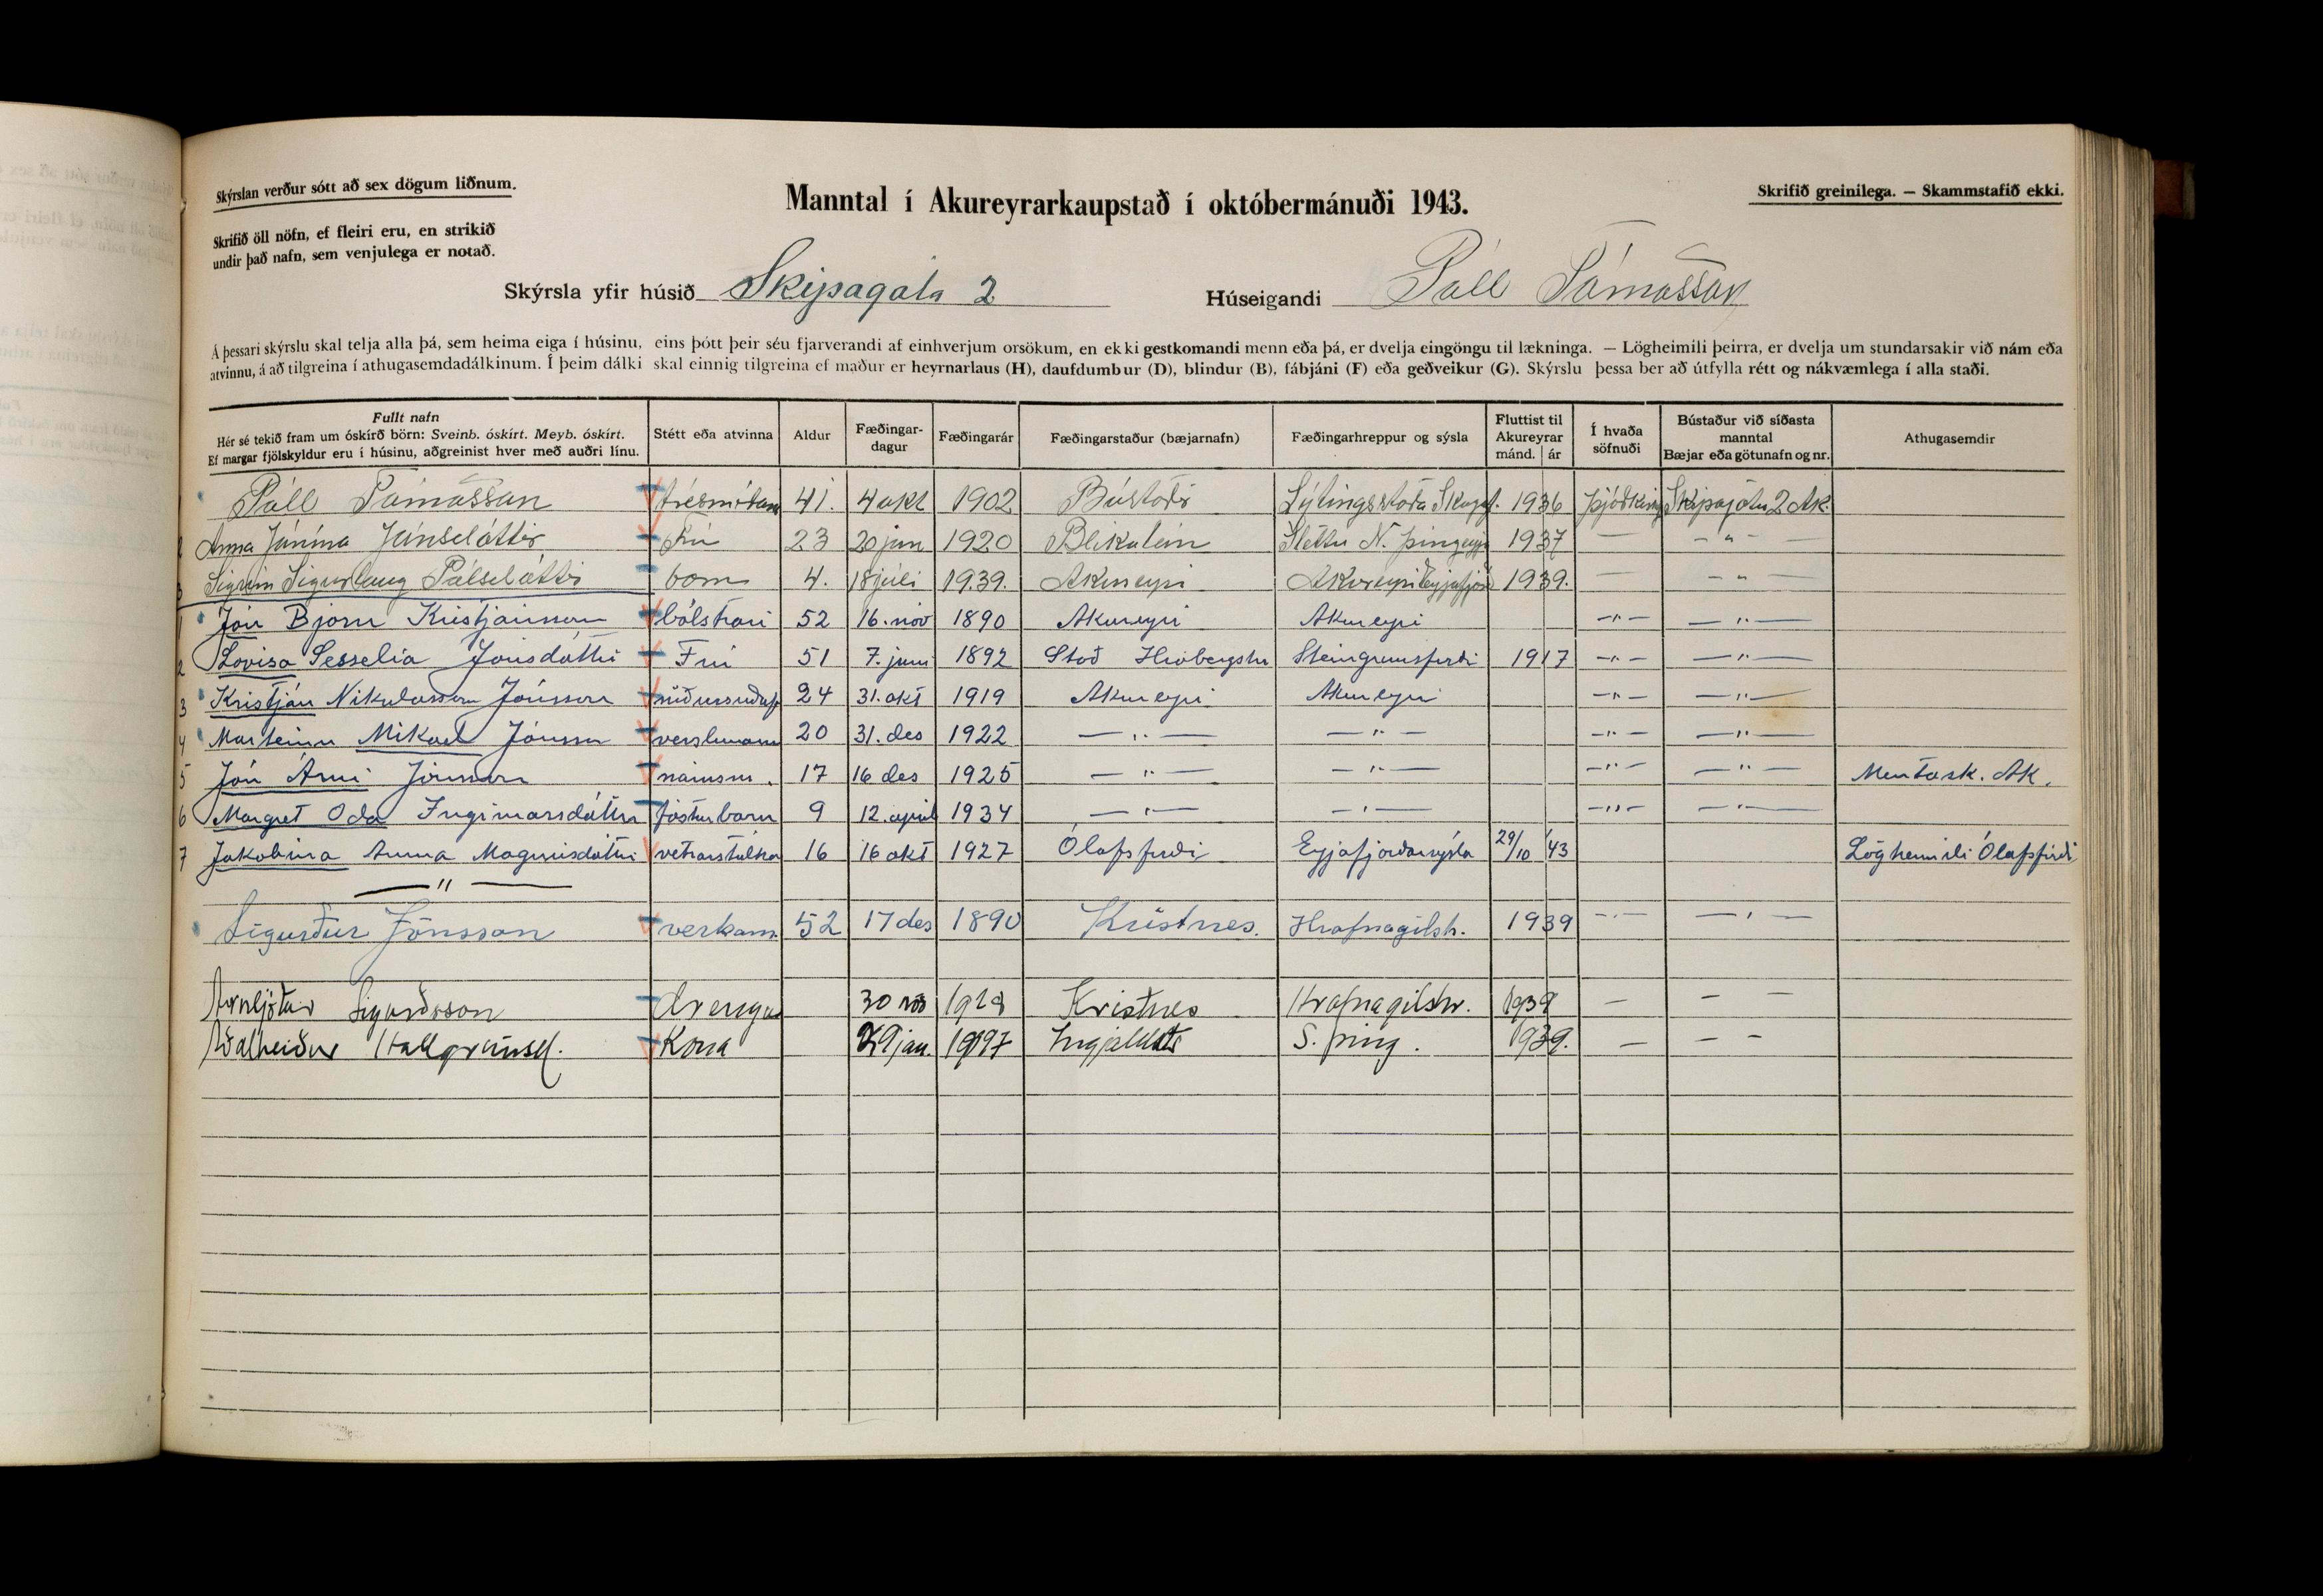 Skýrslan verður sótt að sex dögum liðnum.
Manntal í Akureyrarkaupstað í októbermánuði 1943.
Skrifið greinilega. — Skammstafið ekki.
Skrifið öll nöfn, ef fleiri eru, en strikið
undir það nafn, sem venjulega er notað.
Skýrsla yfir húsið Skipagata 2 Húseigandi Páll Tómasson
Á þessari skýrslu skal telja alla þá, sem heima eiga í húsinu, eins þótt þeir séu fjarverandi af einhverjum orsökum, en ekki gestkomandi menn eða þá, er dvelja eingöngu til lækninga. — Lögheimili þeirra, er dvelja um stundarsakir við nám eða
atvinnu, á að tilgreina í athugasemdadálkinum. Í þeim dálki skal einnig tilgreina ef maður er heyrnarlaus (H), daufdumbur (D), blindur (B), fábjáni (F) eða geðveikur (G). Skýrslu þessa ber að útfylla rétt og nákvæmlega í alla staði.
Fullt nafn
Hér sé tekið fram um óskírð börn: Sveinb. óskírt. Meyb. óskírt.
Ef margar fjölskyldur eru í húsinu, aðgreinist hver með auðri línu.
Stétt eða atvinna
Aldur
Fæðingar-
dagur
Fæðingarár
Fæðingarstaður (bæjarnafn)
Fæðingarhreppur og sýsla
Fluttist til
Akureyrar
mánd. ár
Í hvaða
söfnuði
Bústaður við síðasta
manntal
Bæjar eða götunafn og nr.
Athugasemdir
1 Páll Tómasson 41. 4 okt 1902 Bústöðir Lýtingsstaða Skagaf. 1936 Skipagötu 2 Ak.
2 Anna Jónína Jónsdóttir Frú 23 20 jún 1920 Blikalón Sléttu N. þingeyj 1937 — - " - —
3 Sigrún Sigurlaug Pálsdóttir barn 4. 18 júlí 1939. Akureyri Akureyri Eyjafjörð 1939. — - " - —
1 Jón Björn Kristjánsson bólstrari 52 16. nóv 1890 Akureyri Akureyri - " - — " —
2 Lovísa Sesselía Jónsdóttir Frú 51 7. júní 1892 Stað Hróbergshr Steingrímsfirði 1917 - " - — " —
3 Kristján Nikulásson Jónsson niðursuðuf 24 31. okt 1919 Akureyri Akureyri - " - — " —
4 Marteinn Mikael Jónsson verslmann 20 31. des 1922 — " — — " — - " - — " —
5 Jón Árni Jónsson námsm. 17 16 des 1925 — " — — " — - " - — " — Mentask. Ak.
6 Margrét Oda Ingimarsdóttir fósturbarn 9 12. apríl 1934 — " — — " — - " - — " —
7 Jakobína Anna Magnúsdóttir vetrarstúlka 16 16 okt 1927 Ólafsfirði Eyjafjarðarsýsla 29/10 '43 Lögheimili Ólafsfirði
— " —
Sigurður Jónsson verkam. 52 17 des 1890 Kristnes. Hrafnagilsh. 1939 - " - — " —
Arnljótur Sigurðsson drengur 30 nóv Kristnes Hrafnagilshr. 1939 — — —
Aðalheiður Hallgrímsd. Kona 29 jan. S. þing. 1939. — — —